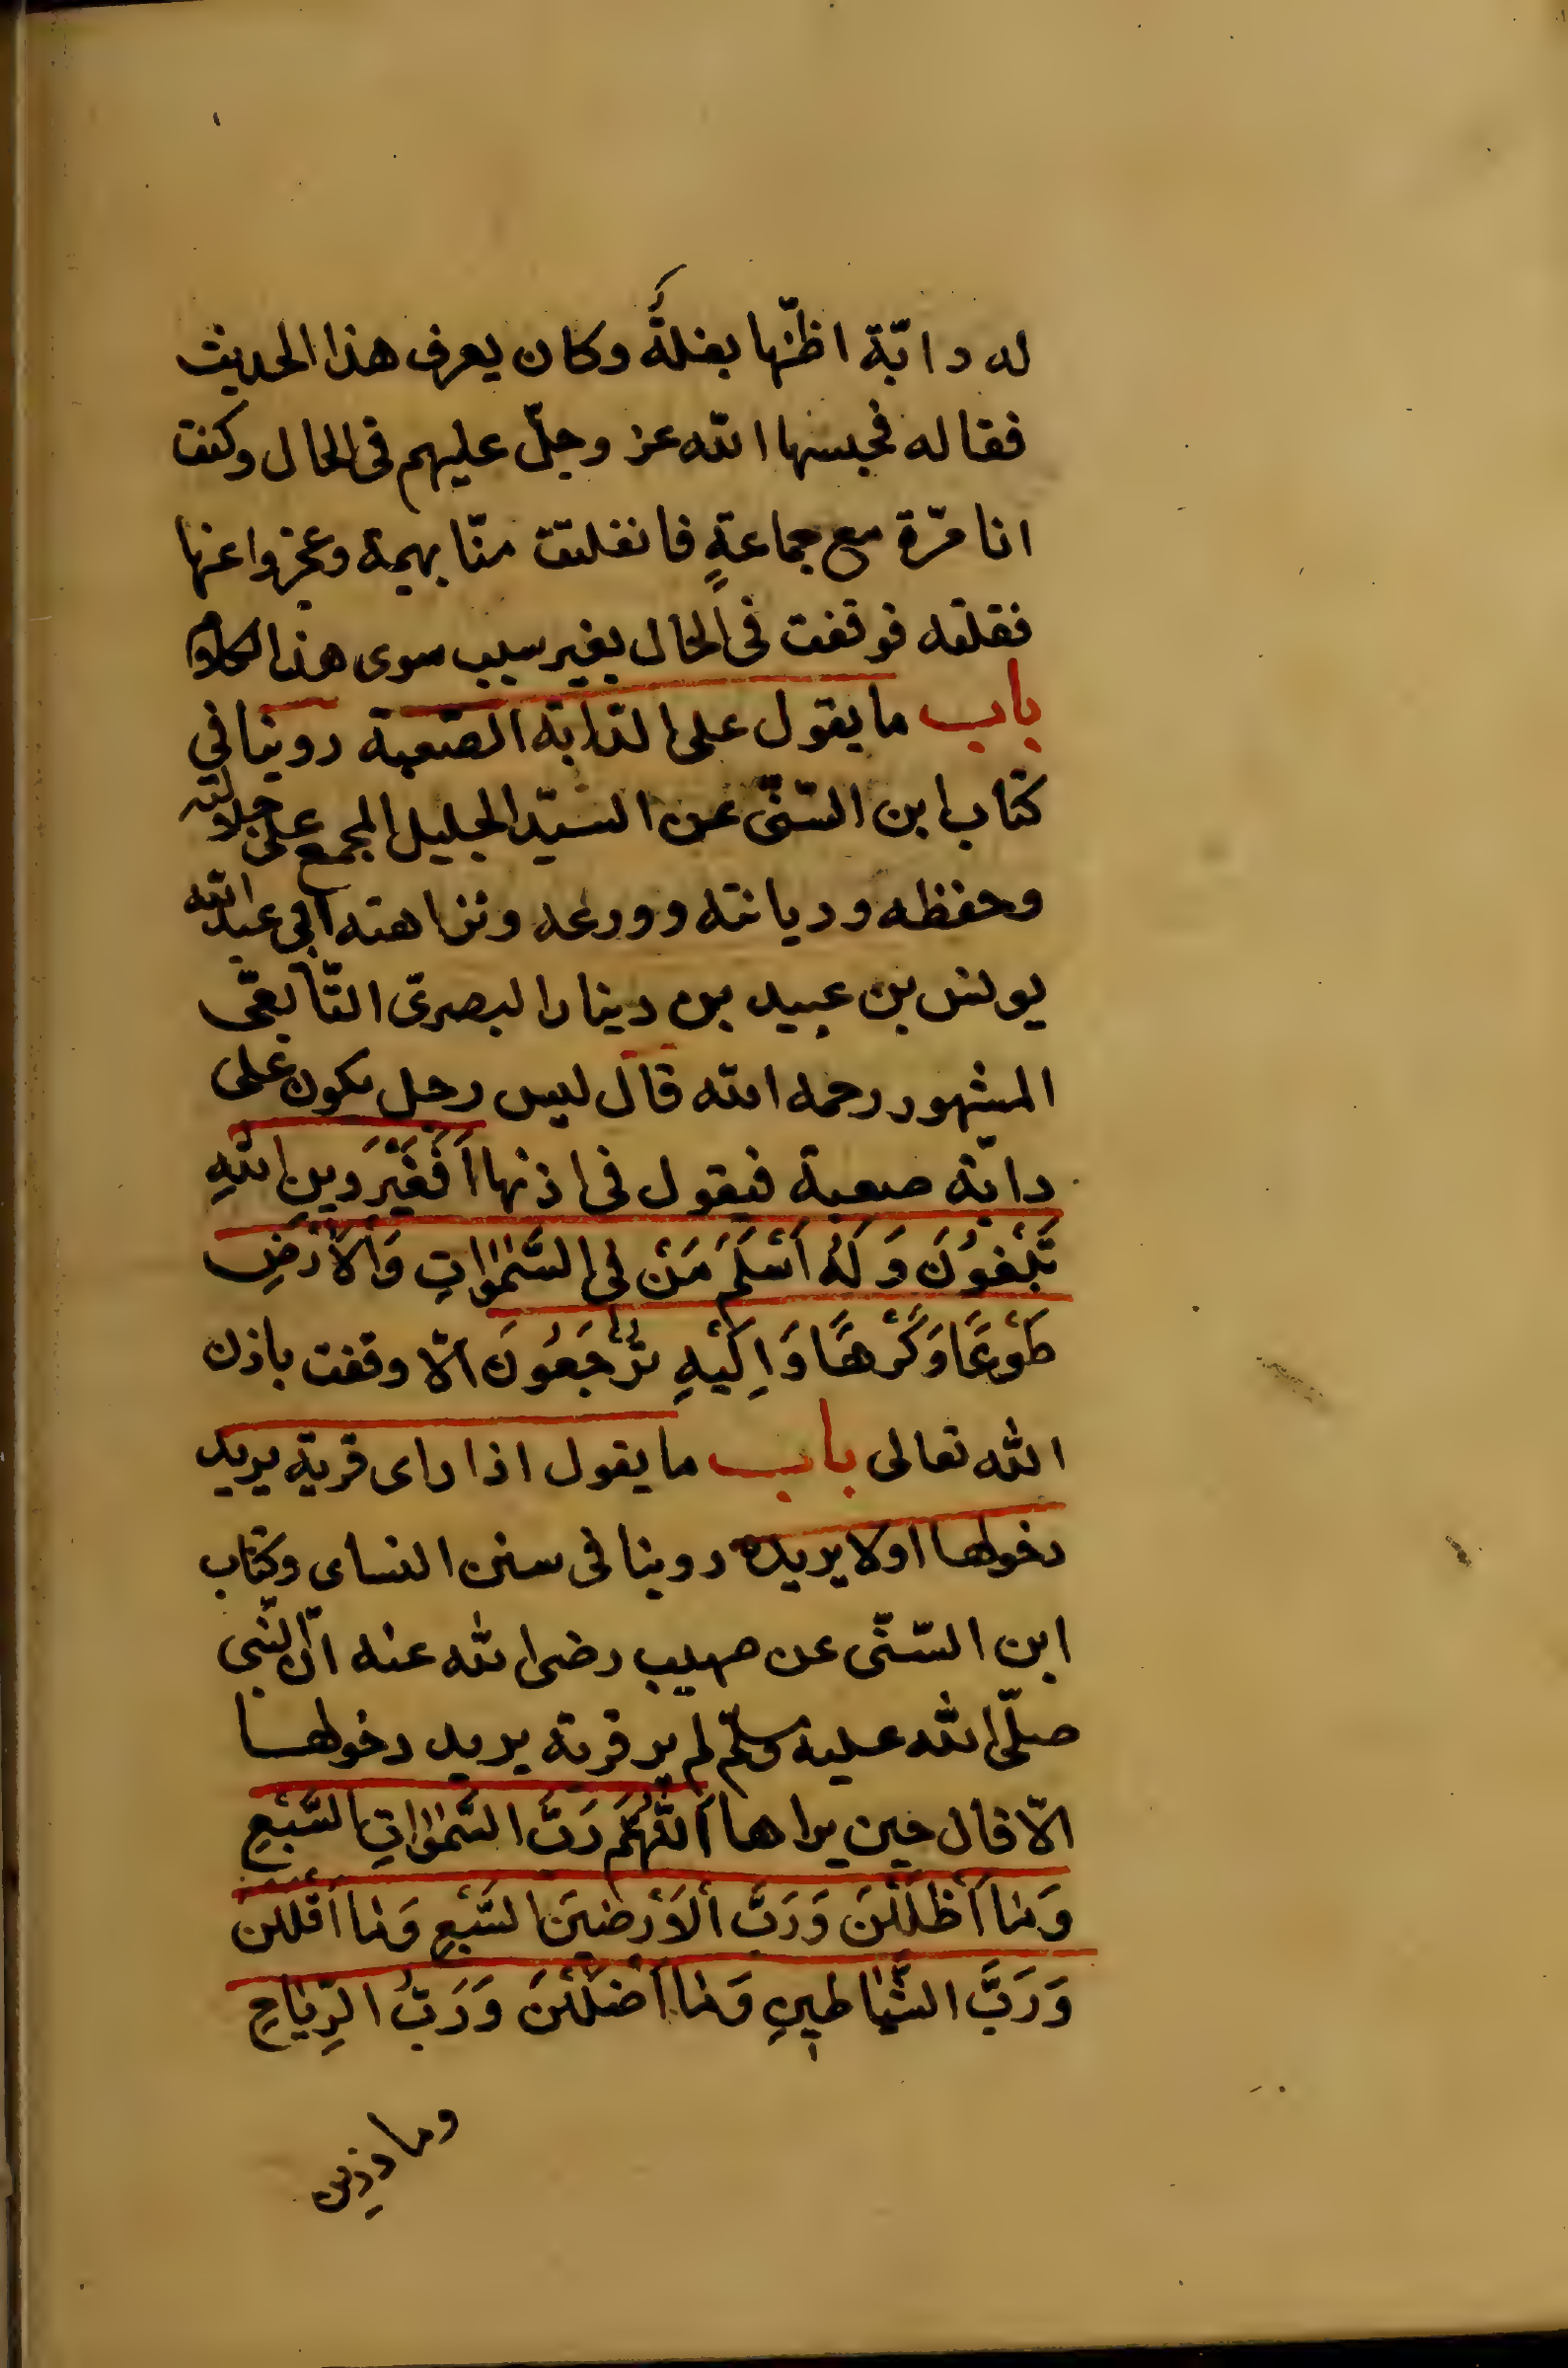 له دابّة اظنّها بغلةً وكان يعرف هذا الحديث
فقاله فحبسها الله عز وجلّ عليهم فى الحال وكنت
انا مرّة مع جماعةٍ فانفلتت منّا بهيمة وعجزوا عنها
فقلته فوقفت فى الحال بغير سبب سوى هذا الكلام
باب ما يقول على الدّابة الصّعبة روينا في
كتاب ابن السّنّى عن السّيّد الجليل المجمع على جلالته
وحفظه وديانته وورعه ونزاهته ابى عبد الله
يونس بن عبيد بن دينار البصرىّ التّابعىّ
المشهور رحمه الله قال ليس رجل يكون على
دابّة صعبة فيقول فى اذنها اَفَغَيْرَ دِينِ اللهِ
تَبْغُونَ وَلَهُ اَسْلَمَ مَنْ فِى السَّمٰوَاتِ وَالْاَرْضِ
طَوْعًا وَكَرْهًا وَاِلَيْهِ تُرْجَعُونَ الّا وقفت باذن
الله تعالى باب ما يقول اذا راى قرية يريد
دخولها اولا يريده روينا فى سنن النساى وكتاب
ابن السّنّى عن صهيب رضى الله عنه انّ النّبى
صلّى الله عليه وسلّم لم ير قرية يريد دخولها
الّا قال حين يراها اَللّٰهُمَّ رَبَّ السَّمٰوَاتِ السَّبْعِ
وَمَا اَظْلَلْنَ وَرَبَّ الْاَرَضِينَ السَّبْعِ وَمَا اَقْلَلْنَ
وَرَبَّ الشَّيَاطِينِ وَمَا اَضْلَلْنَ وَرَبَّ الرِّيَاحِ
وما ذرين